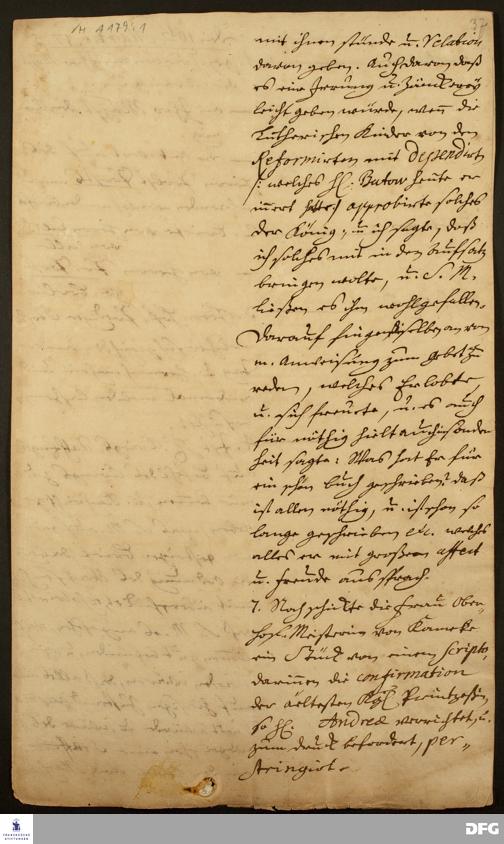 H A 179:1
37
mit ihnen stünde u. Relation
davon geben. Auch davon daß
es eine Irrung u. Zänckerey
leicht geben würde, wen die
Lutherischen Kinder von den
Reformirten mit dependirten
/: welches H. Butow heute er
innert :/ approbirte solches
der König, u. ich sagte, daß
ich solches mit in den Auffsatz
bringen wolte, u. S. M.
ließen es ihm wohlgefallen.
Darauf fingen dieselben an von
m. Anweisung zum gebet zu
reden, welches Er lobte,
u. sich freuete, u. es auch
für nöthig hielt, auch
heit sagte: Was hat Er für
ein schön buch geschrieben, daß
ist allen nöthig, u. ist schon so
lange geschrieben etc. welches
alles er mit großem affect
u. freude aus sprach.
7. Noch schickte die Frau Ober-
hof-Meisterin von Kameke
ein Stück von einem scripto,
darinnen die confirmation
der ältesten Kgl. Printzeßin,
so H. Andreae verrichtet, u.
zum druck befordert, per-
stringirt.
FRANCKESCHE STIFTUNGEN
DFG